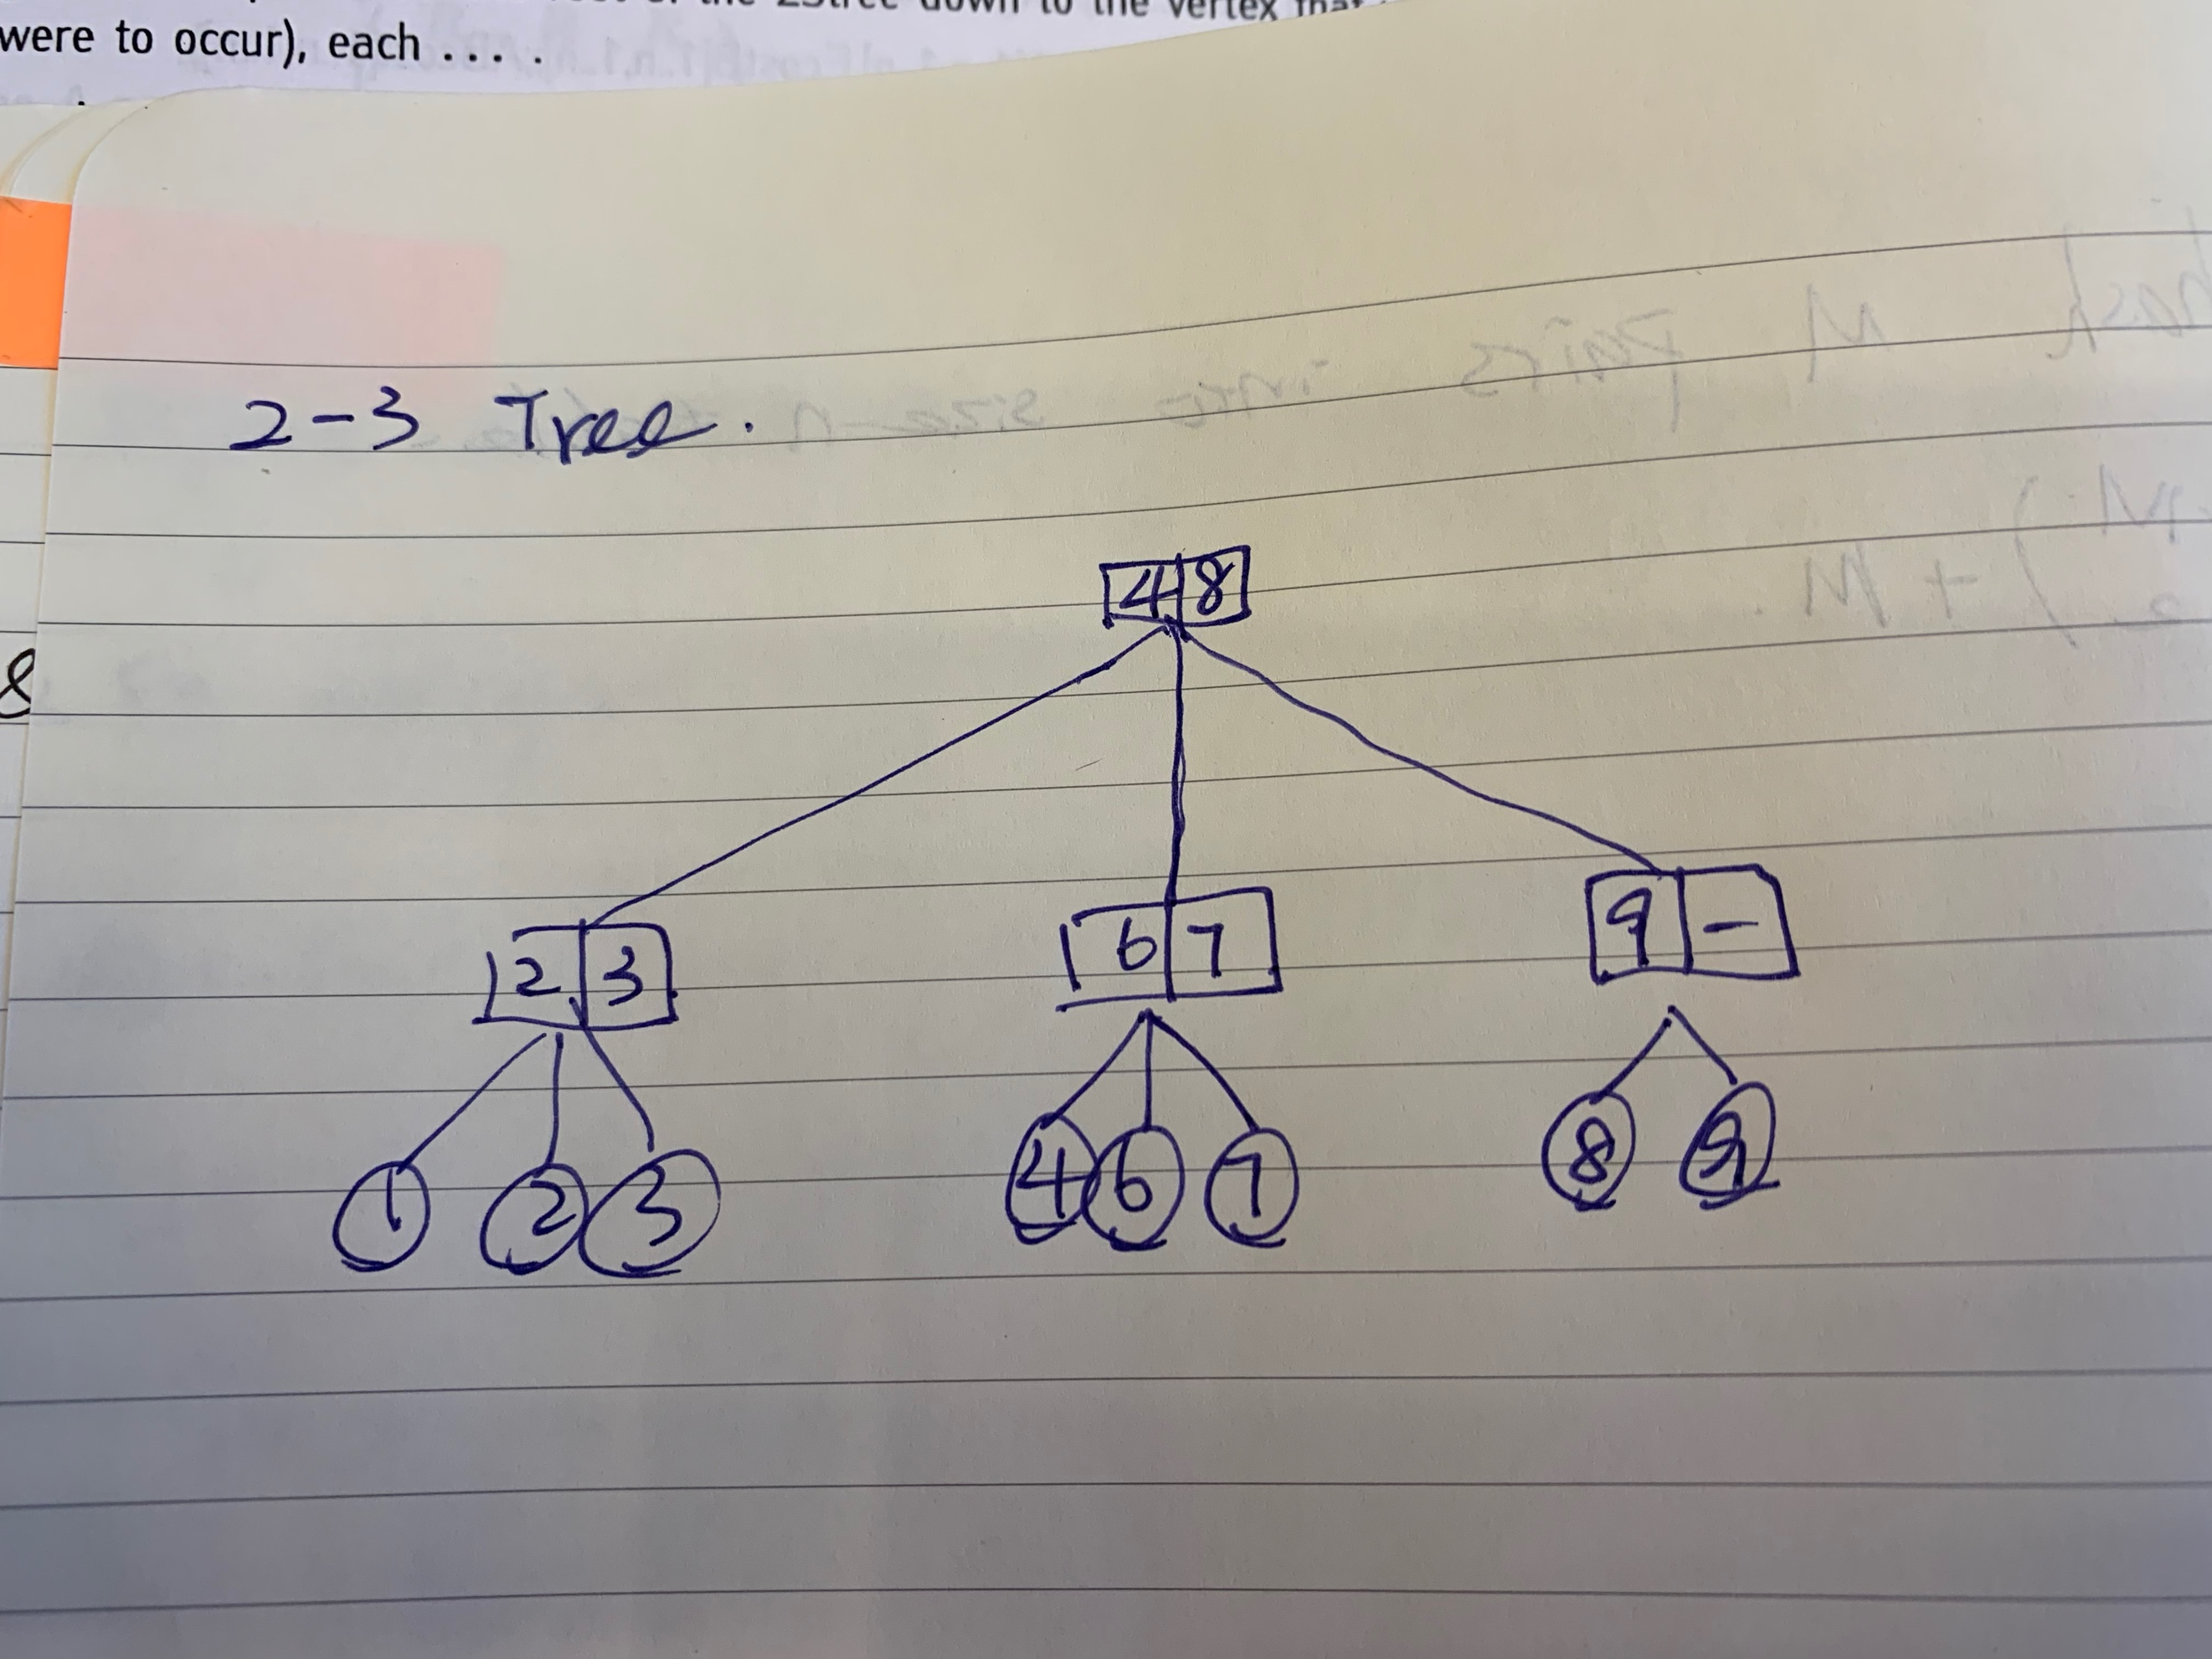 down to the vertex
were to occur), each ... .
2-3 Tree.
4 8
2 3
6 7
9 -
1 2 3
4 6 7
8 9
8